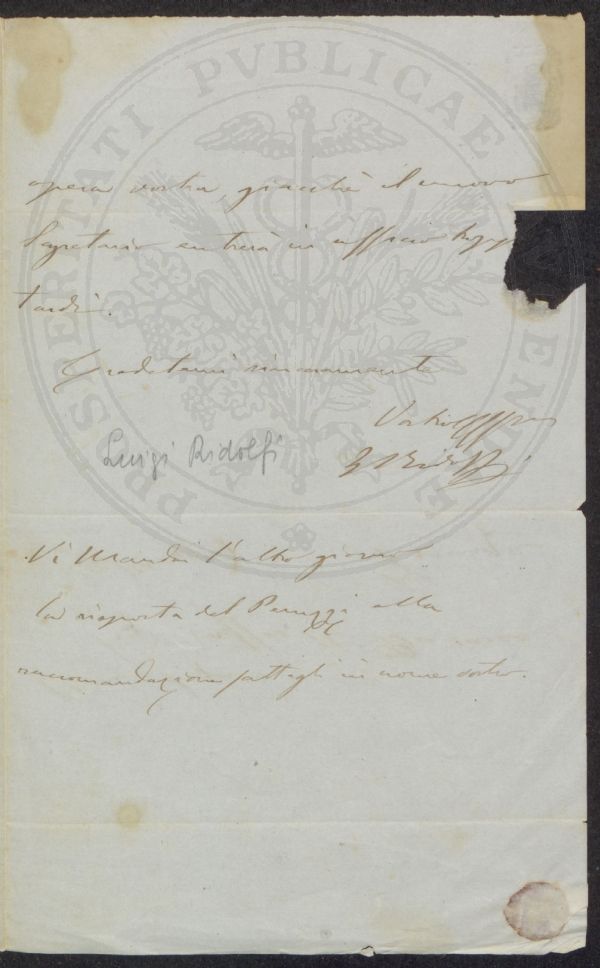 PROSPERITATI PVBLICAE AVGENDAE
opera vostra, giacchè il nuovo
Segretario entrerà in ufficio
tardi.
Credetemi sinceramente
Vostro
L Ridolfi
Luigi Ridolfi
Vi mandai l'altro giorno
la risposta del Peruzzi alla
raccomandazione fattagli in nome vostro.